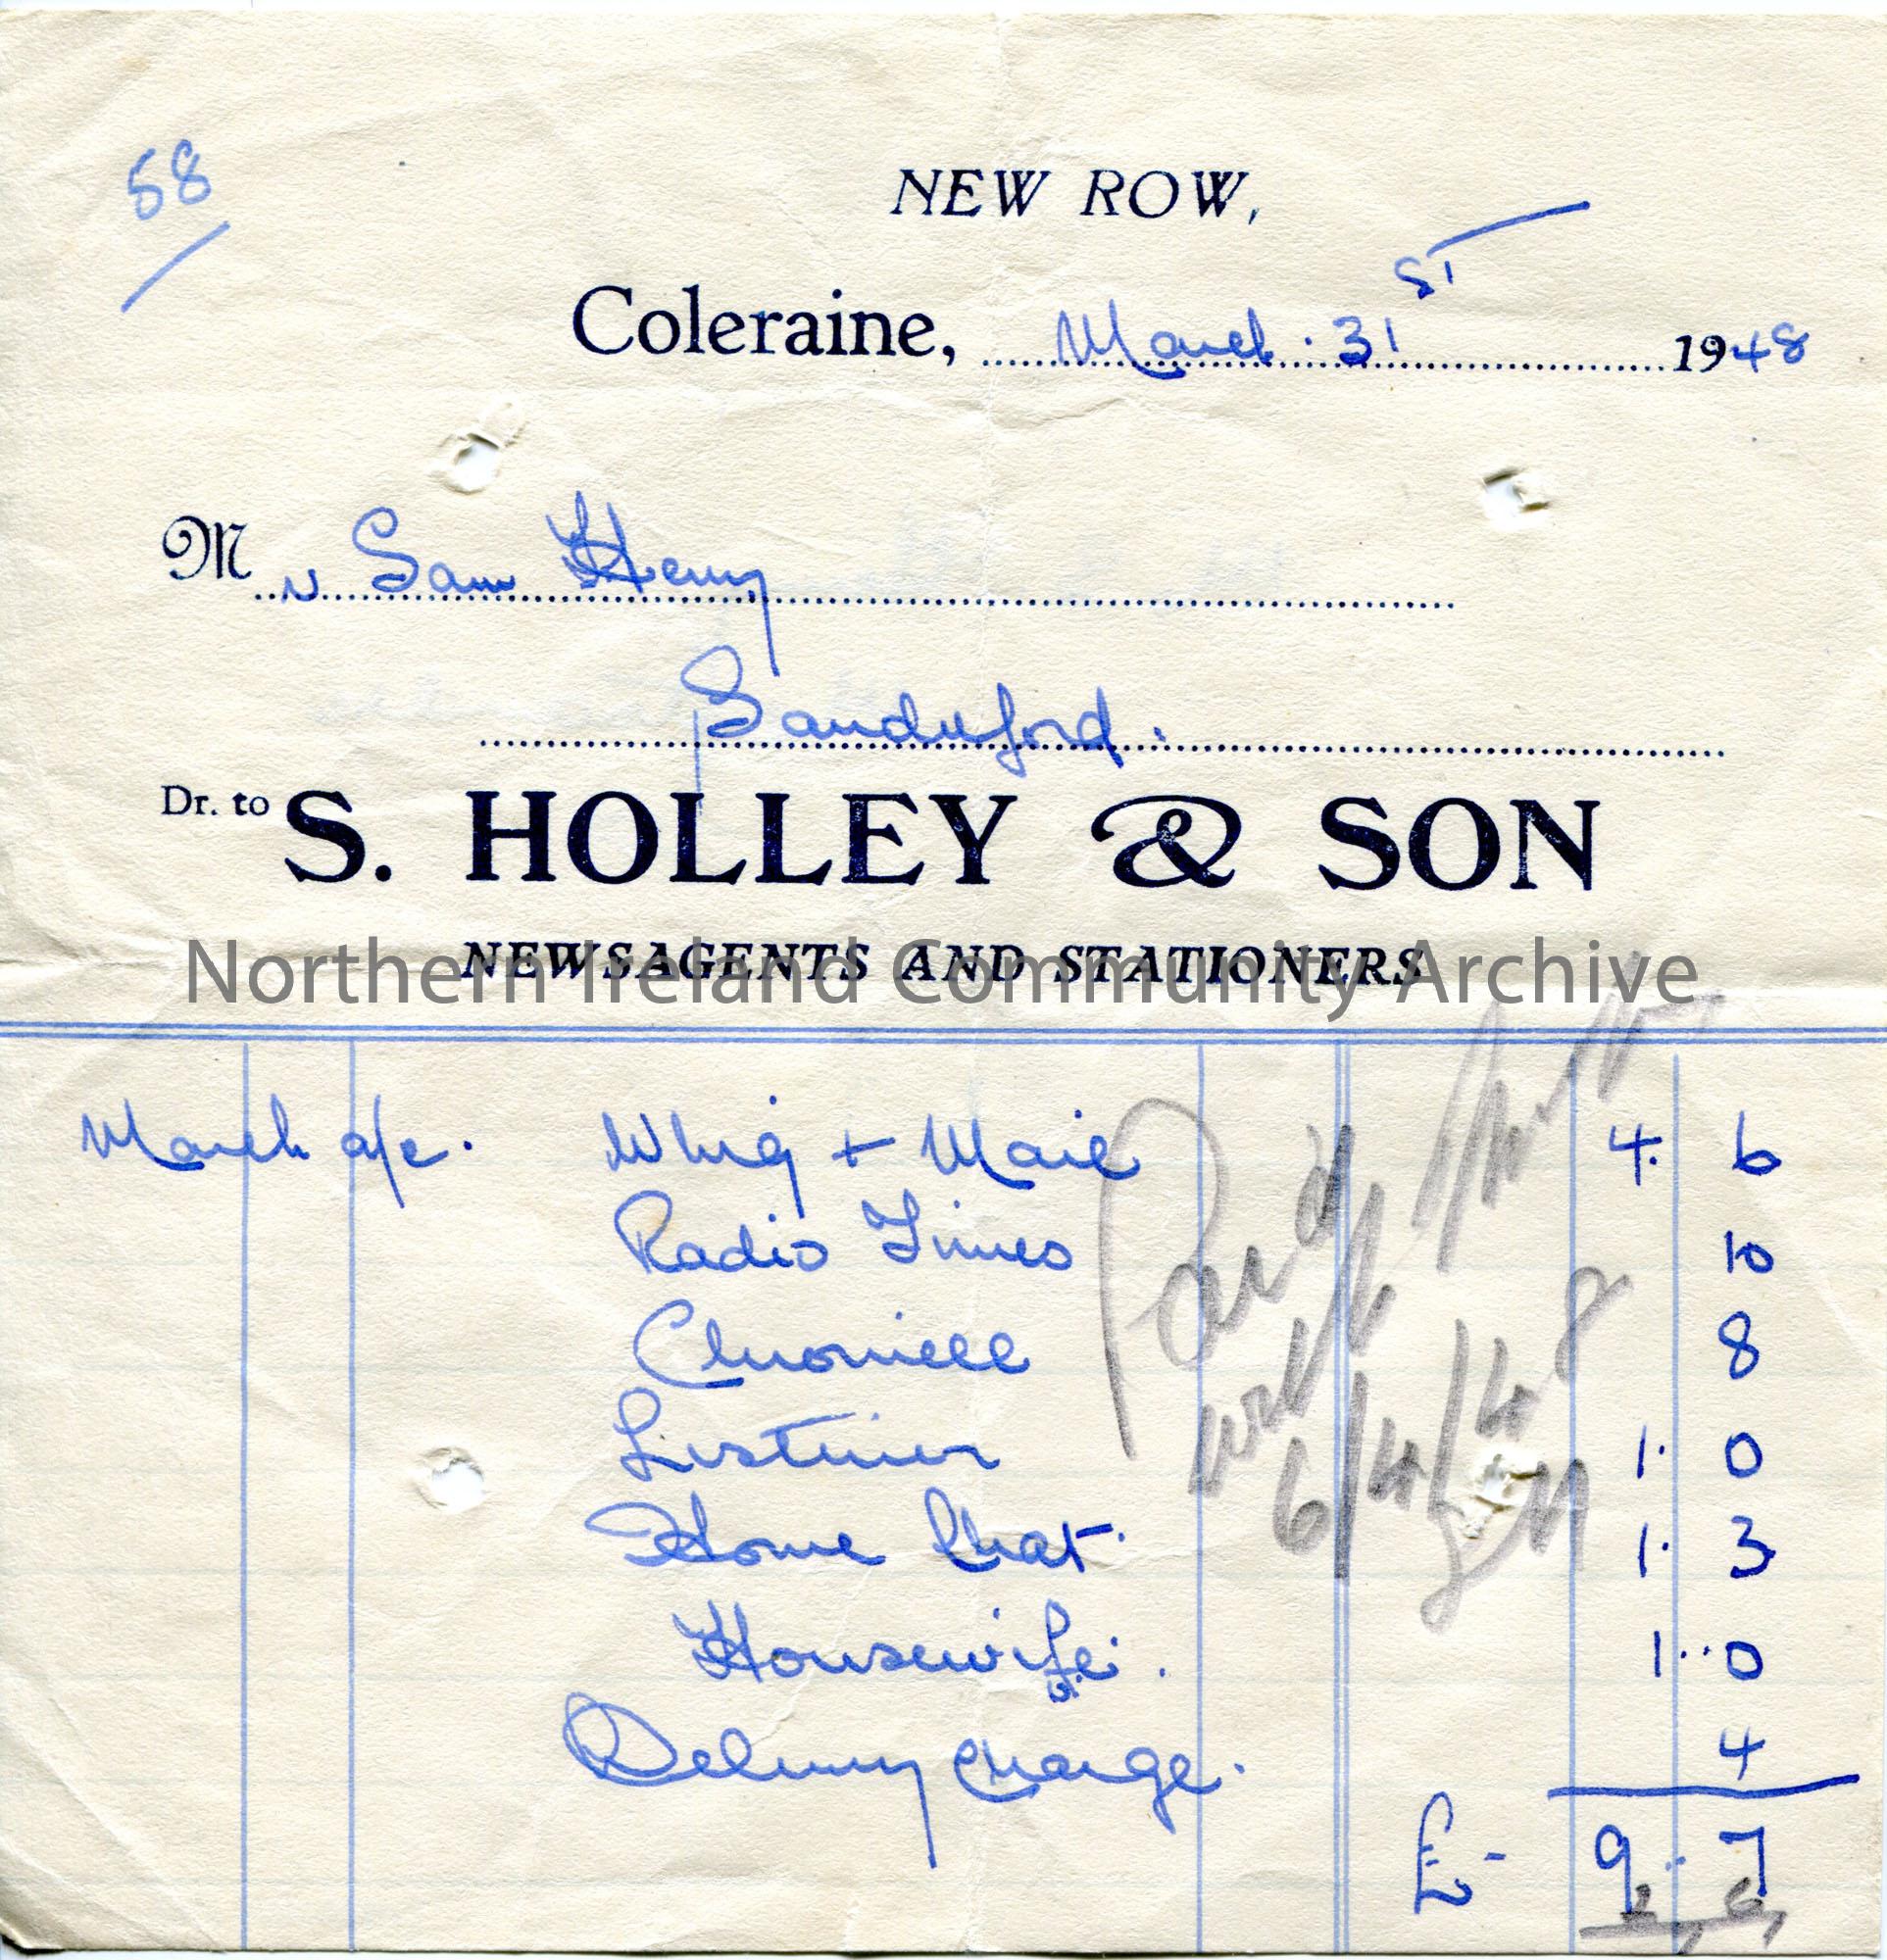 58
NEW ROW,
Coleraine, March. 31st 1948
Mr Sam Henry
Sandleford.
Dr. to S. HOLLEY & SON
NEWSAGENTS AND STATIONERS
Northern Ireland Community Archive
March a/c. Whig + Mail 4. 6
Radio Times 10
Chronicle 8
Listener 1. 0
Home Chat. 1. 3
Housewife. 1.. 0
Delivery Charge. 4
£ - 9.. 7
Paid
with
6/4/48